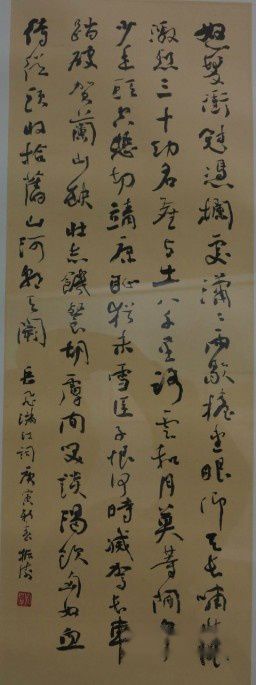 怒髮衝冠憑欄處瀟瀟雨歇抬望眼仰天長嘯壯懷
激烈三十功名塵与土八千里路云和月莫等閒白了
少年頭空悲切靖康恥猶未雪臣子恨何時滅駕長車
踏破賀蘭山缺壯志饑餐胡虜肉笑談渴飲匈奴血
待從頭收拾舊山河朝天闕
岳飛滿江詞庚寅秋